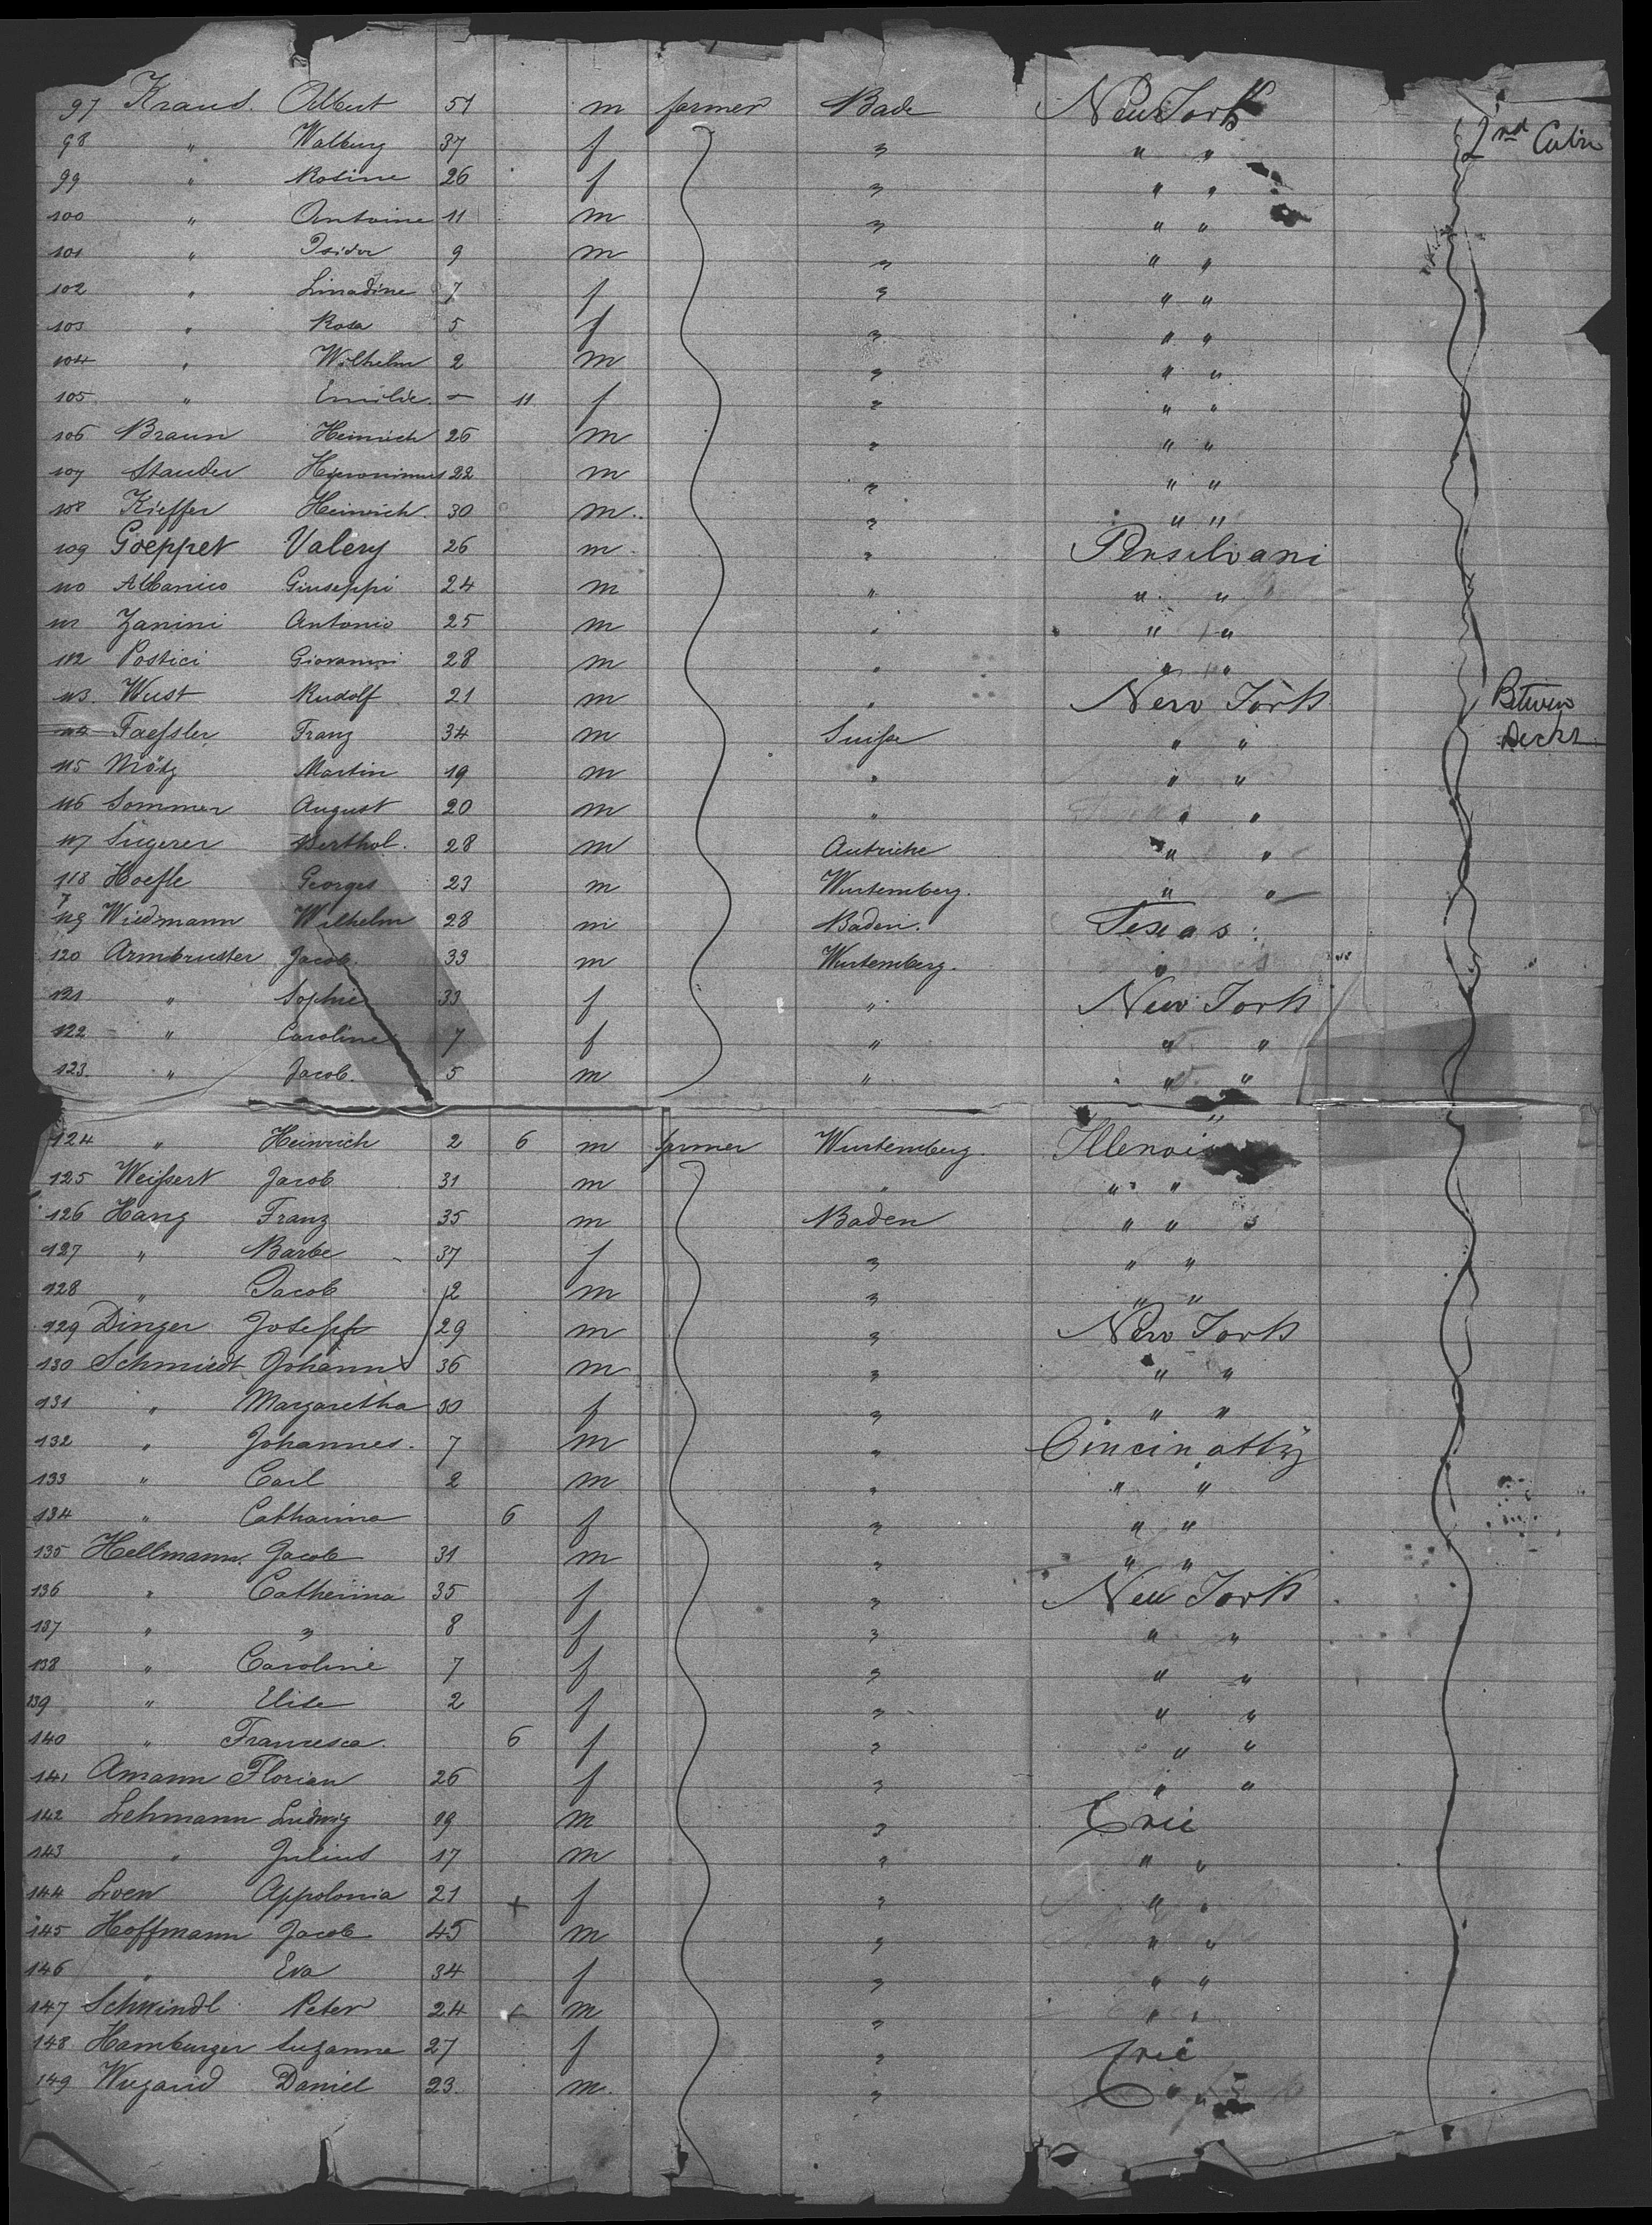 97 Kraus. Albert 51 m farmer Bade New York
98 " Walburg 37 f " " " 2nd Cabin
99 " Rosine 26 f " " "
100 " Antoine 11 m " " "
101 " Isidor 9 m " " "
102 " f " " "
103 " Rosa 5 f " " "
104 " Wilhelm 2 m " " "
105 " Emilie. – 11 f " " "
106 Braun Heinrich 26 m " " "
107 Stauder Hyeronimus 22 m " " "
108 Kieffer Heinrich. 30 m. " " "
109 Goeppet Valery 26 m " Pensilvani
110 Albanico Giuseppi 24 m " " "
111 Zanini Antonio 25 m " " "
112 Postici Giovanni 28 m " " "
113. Wust Rudolf 21 m " New York Betwen
114 Faessler Franz 34 m Suisse " " Decks
115 Mötz Martin 19 m " " "
116 Sommer August 20 m " " "
117 Berthol. 28 m Autriche " "
118 Hoefle Georges 23 m Wurtemberg. " "
119 Wiedmann Wilhelm 28 m Baden. Texas.
120 Armbruster Jacob. 33 m Wurtemberg. "
121 " Sophie 33 f " New York
122 " Caroline 7 f " " "
123. " Jacob. 5 m " " "
124 " Heinrich 2 6 m farmer Wurtemberg. Illenois
125 Weissert Jacob 31 m " " "
126 Hang Franz 35 m Baden " "
127 " Barbe 37 f " " "
128 " Jacob 2 m " " "
129 Dinger Joseph 29 m " New York
130 Schmiedt Johann 36 m " " "
131 " Margaretha 30 f " " "
132 " Johannes. 7 m " Cincinatty
133 " Carl 2 m " " "
134 " Catharina 6 f " " "
135 Hellmann. Jacob 31 m " " "
136 " Catherina 35 f " New York
137 " " 8 f " " "
138 " Caroline 7 f " " "
139 " Elise 2 f " " "
140 " Francesca. 6 f " " "
141 Amann Florian 26 f " " "
142 Lehmann Ludwig 19 m " Erie
143 " Julius 17 m " " "
144 Loew Appolonia 21 + f " " "
145 Hoffmann Jacob 45 m " " "
146 " Eva 34 f " " "
147 Schwindl Peter 24 + m " " "
148 Hamburger Suzanne 27 f " Erie
149 Wugand Daniel 23. m. " " "